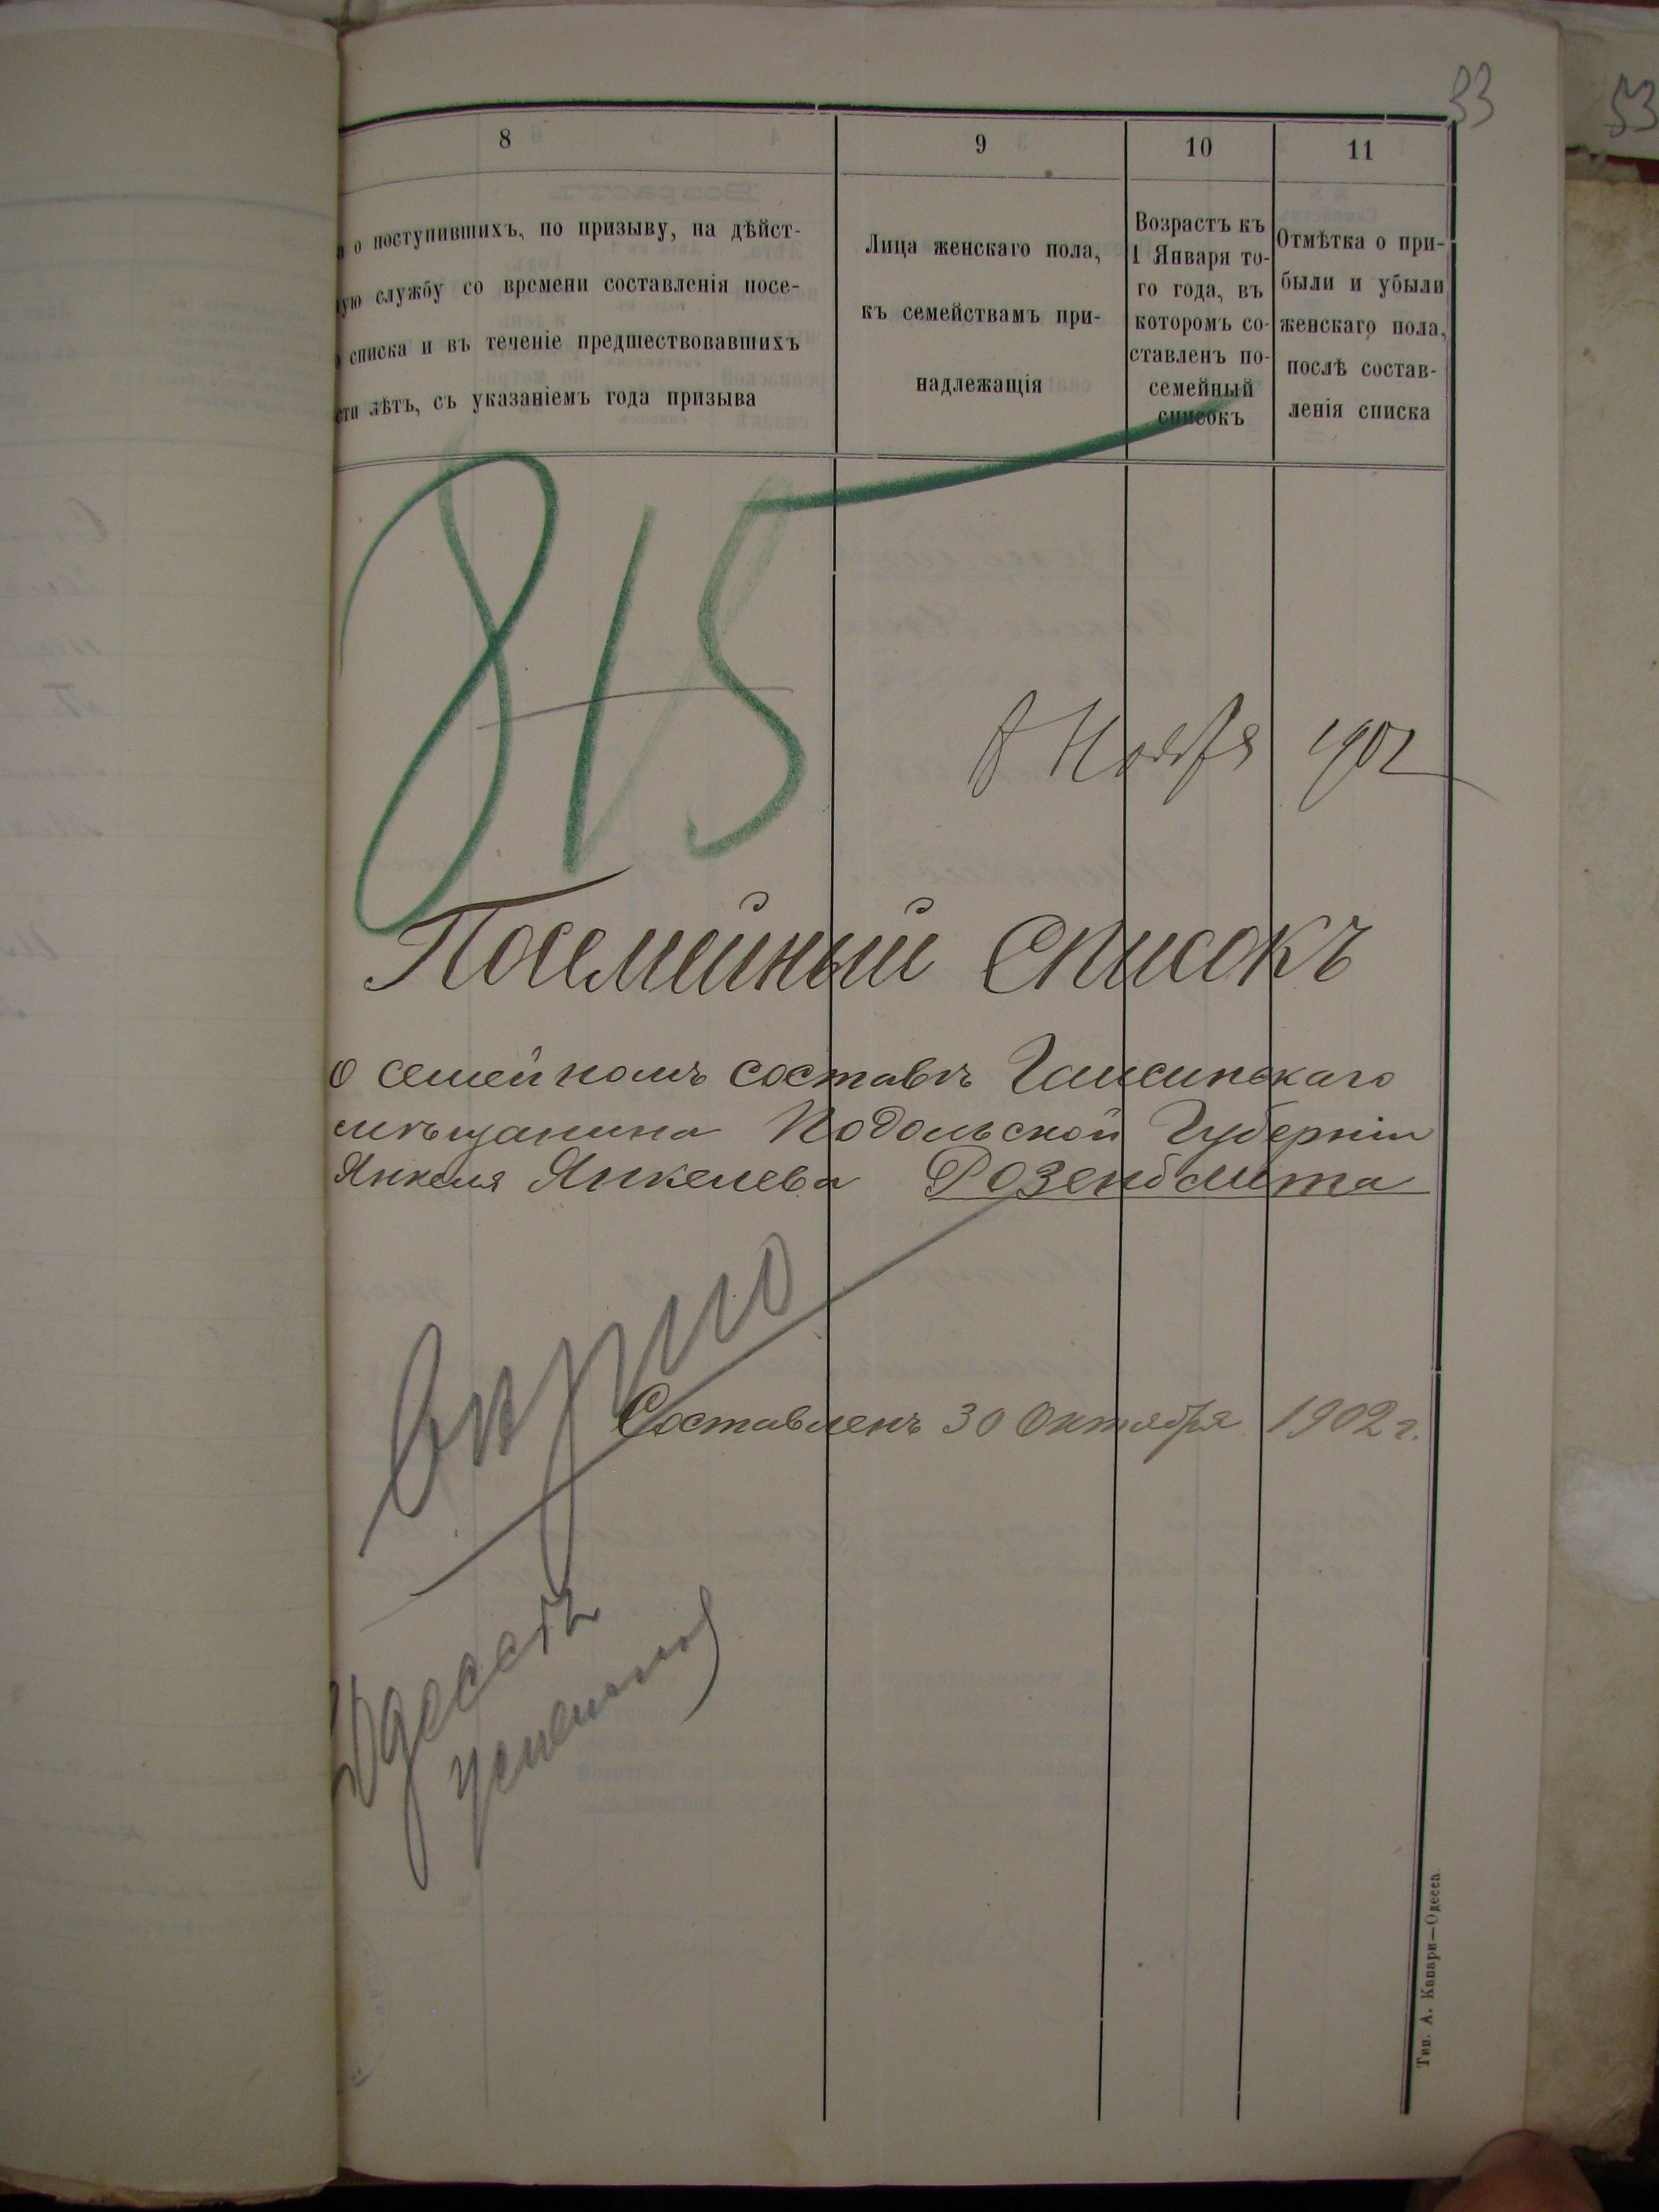 53
53
8
9
10
11
о поступившихъ, по призыву, на дѣйст-
ую службу со времени составленія посе-
списка и въ теченіе предшествовавшихъ
сти лѣтъ, съ указаніемъ года призыва
Лица женскаго пола,
къ семействамъ при-
надлежащія
Возрастъ къ
1 Января то-
го года, въ
которомъ со-
ставленъ по-
семейный
списокъ
Отмѣтка о при-
были и убыли
женскаго пола,
послѣ состав-
ленія списка
815
8 Ноября 1902
Посемейный списокъ
о семейномъ составѣ Гайсинскаго
мѣщанина Подольской Губерніи
Янкеля Янкелева Розенблита
Вѣрно
Составленъ 30 Октября 1902 г.
Одессѣ
Тип. А. Капари—Одесса.